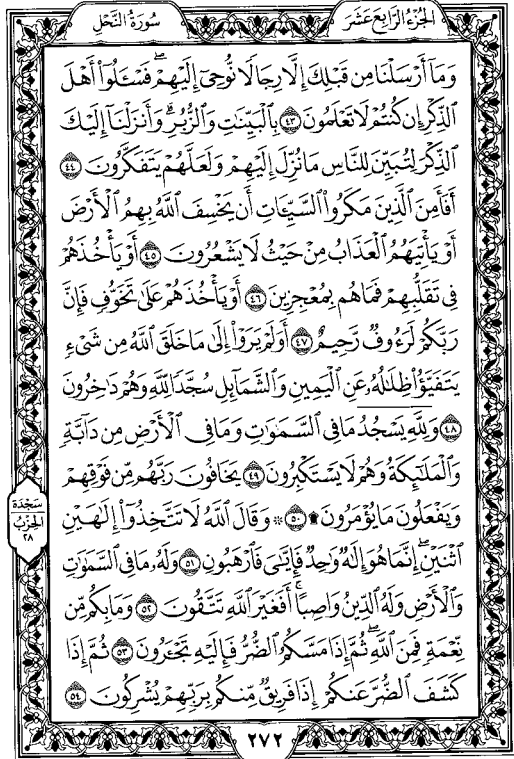 الجزء الرابع عشر
سورة النحل
وَمَآ أَرۡسَلۡنَا مِن قَبۡلِكَ إِلَّا رِجَالٗا نُّوحِيٓ إِلَيۡهِمۡۖ فَسۡـَٔلُوٓاْ أَهۡلَ
ٱلذِّكۡرِ إِن كُنتُمۡ لَا تَعۡلَمُونَ ٤٣ بِٱلۡبَيِّنَٰتِ وَٱلزُّبُرِۗ وَأَنزَلۡنَآ إِلَيۡكَ
ٱلذِّكۡرَ لِتُبَيِّنَ لِلنَّاسِ مَا نُزِّلَ إِلَيۡهِمۡ وَلَعَلَّهُمۡ يَتَفَكَّرُونَ ٤٤
أَفَأَمِنَ ٱلَّذِينَ مَكَرُواْ ٱلسَّيِّـَٔاتِ أَن يَخۡسِفَ ٱللَّهُ بِهِمُ ٱلۡأَرۡضَ
أَوۡ يَأۡتِيَهُمُ ٱلۡعَذَابُ مِنۡ حَيۡثُ لَا يَشۡعُرُونَ ٤٥ أَوۡ يَأۡخُذَهُمۡ
فِي تَقَلُّبِهِمۡ فَمَا هُم بِمُعۡجِزِينَ ٤٦ أَوۡ يَأۡخُذَهُمۡ عَلَىٰ تَخَوُّفٖ فَإِنَّ
رَبَّكُمۡ لَرَءُوفٞ رَّحِيمٌ ٤٧ أَوَلَمۡ يَرَوۡاْ إِلَىٰ مَا خَلَقَ ٱللَّهُ مِن شَيۡءٖ
يَتَفَيَّؤُاْ ظِلَٰلُهُۥ عَنِ ٱلۡيَمِينِ وَٱلشَّمَآئِلِ سُجَّدٗا لِّلَّهِ وَهُمۡ دَٰخِرُونَ
٤٨ وَلِلَّهِۤ يَسۡجُدُۤ مَا فِي ٱلسَّمَٰوَٰتِ وَمَا فِي ٱلۡأَرۡضِ مِن دَآبَّةٖ
وَٱلۡمَلَٰٓئِكَةُ وَهُمۡ لَا يَسۡتَكۡبِرُونَ ٤٩ يَخَافُونَ رَبَّهُم مِّن فَوۡقِهِمۡ
وَيَفۡعَلُونَ مَا يُؤۡمَرُونَ ۩ ٥٠ ۞ وَقَالَ ٱللَّهُ لَا تَتَّخِذُوٓاْ إِلَٰهَيۡنِ
ٱثۡنَيۡنِۖ إِنَّمَا هُوَ إِلَٰهٞ وَٰحِدٞ فَإِيَّٰيَ فَٱرۡهَبُونِ ٥١ وَلَهُۥ مَا فِي ٱلسَّمَٰوَٰتِ
وَٱلۡأَرۡضِ وَلَهُ ٱلدِّينُ وَاصِبًاۚ أَفَغَيۡرَ ٱللَّهِ تَتَّقُونَ ٥٢ وَمَا بِكُم مِّن
نِّعۡمَةٖ فَمِنَ ٱللَّهِۖ ثُمَّ إِذَا مَسَّكُمُ ٱلضُّرُّ فَإِلَيۡهِ تَجۡـَٔرُونَ ٥٣ ثُمَّ إِذَا
كَشَفَ ٱلضُّرَّ عَنكُمۡ إِذَا فَرِيقٞ مِّنكُم بِرَبِّهِمۡ يُشۡرِكُونَ ٥٤
سجدة
الحزب
٢٨
٢٧٢